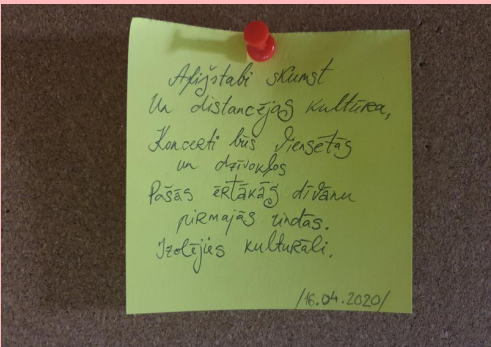 Afišstabi skumst
Un distancējas kultūra,
Koncerti būs Viensētās
un dzīvokļos
Pašās ērtākās dīvānu
pirmajās rindās.
Izolējies kulturāli.
/16.04.2020/